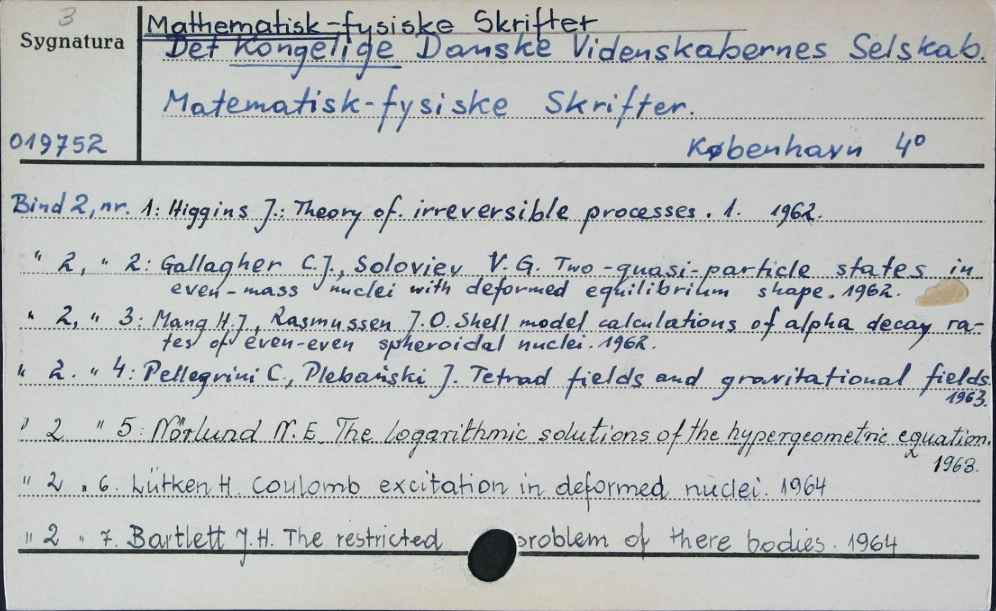 3
Mathematisk-fysiske Skrifter
Sygnatura
Det Kongelige Danske Videnskabernes Selskab.
Matematisk-fysiske Skrifter.
019752
København 4º
Bind 2, nr. 1: Higgins J.: Theory of irreversible processes. 1. 1962.
" 2, " 2: Gallagher C.J., Soloviev V.G. Two-quasi-particle states in
even-mass nuclei with deformed equilibrium shape. 1962.
" 2, " 3: Mang H.J., Rasmussen J.O. Shell model calculations of alpha decay ra-
tes of even-even spheroidal nuclei. 1962.
" 2. " 4: Pellegrini C., Plebański J. Tetrad fields and gravitational fields.
1963.
" 2 " 5: Nörlund N.E. The logarithmic solutions of the hypergeometric equation.
1963.
" 2 " 6. Lütken H. Coulomb excitation in deformed nuclei. 1964
" 2 " 7. Bartlett J.H. The restricted problem of there bodies. 1964